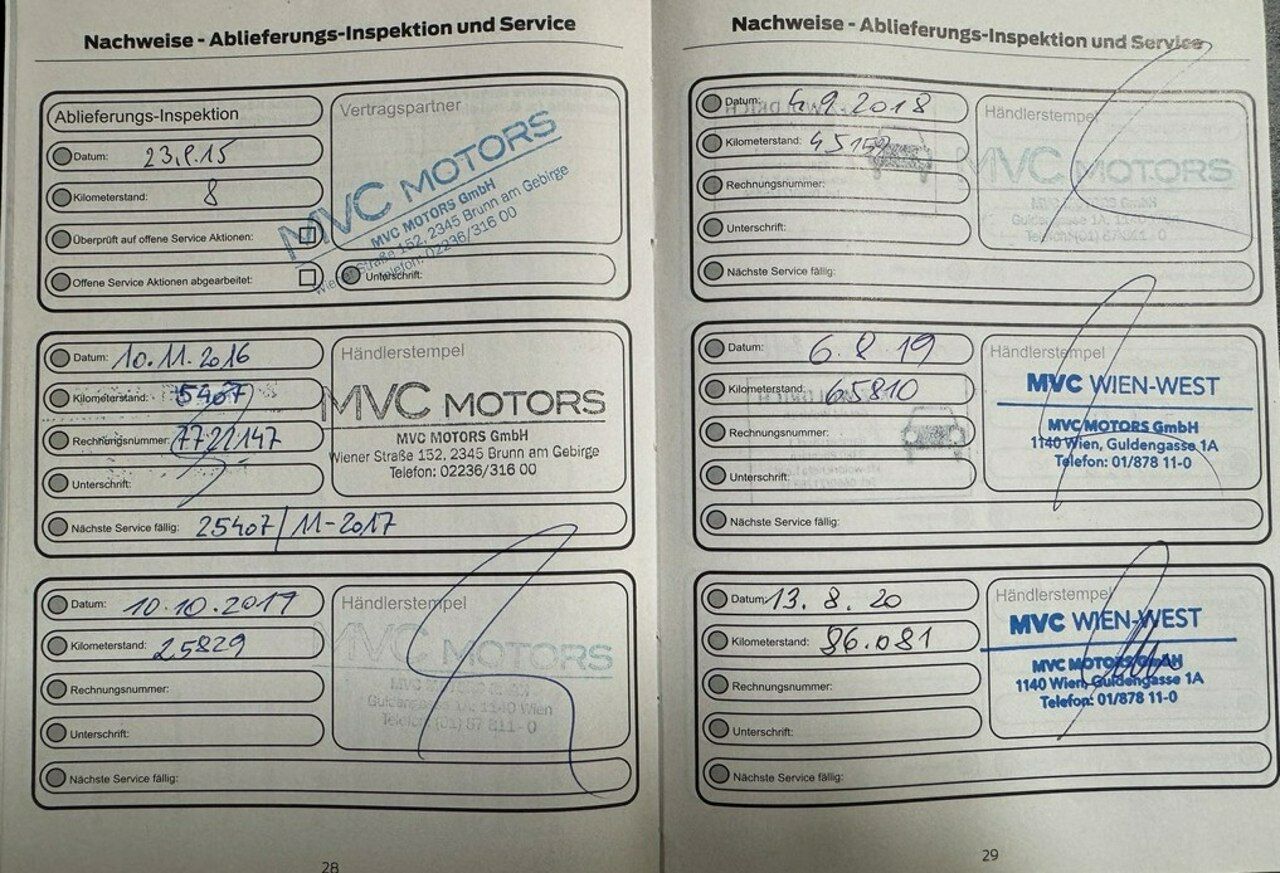 Nachweise - Ablieferungs-Inspektion und Service
Ablieferungs-Inspektion
Datum: 23.8.15
Kilometerstand: 8
Überprüft auf offene Service Aktionen:
Offene Service Aktionen abgearbeitet:
Vertragspartner
MVC MOTORS
MVC MOTORS GmbH
Wiener Straße 152, 2345 Brunn am Gebirge
Telefon: 02236/316 00
Unterschrift:
Datum: 10.11.2016
Kilometerstand: 5407
Rechnungsnummer: 7722147
Unterschrift:
Nächste Service fällig: 25407/11-2017
Händlerstempel
MVC MOTORS
MVC MOTORS GmbH
Wiener Straße 152, 2345 Brunn am Gebirge
Telefon: 02236/316 00
Datum: 10.10.2017
Kilometerstand: 25829
Rechnungsnummer:
Unterschrift:
Nächste Service fällig:
Händlerstempel
MVC MOTORS
MVC MOTORS GmbH
Guldengasse 1A, 1140 Wien
Telefon: (01) 87 811-0
28
Nachweise - Ablieferungs-Inspektion und Service
Datum: 4.9.2018
Kilometerstand: 45152
Rechnungsnummer:
Unterschrift:
Nächste Service fällig:
Händlerstempel
MVC MOTORS
Guldengasse 1A, 1140
Datum: 6.8.19
Kilometerstand: 65810
Rechnungsnummer:
Unterschrift:
Nächste Service fällig:
Händlerstempel
MVC WIEN-WEST
MVC MOTORS GmbH
1140 Wien, Guldengasse 1A
Telefon: 01/878 11-0
Datum: 13.8.20
Kilometerstand: 86.081
Rechnungsnummer:
Unterschrift:
Nächste Service fällig:
Händlerstempel
MVC WIEN-WEST
MVC MOTORS GmbH
1140 Wien, Guldengasse 1A
Telefon: 01/878 11-0
29